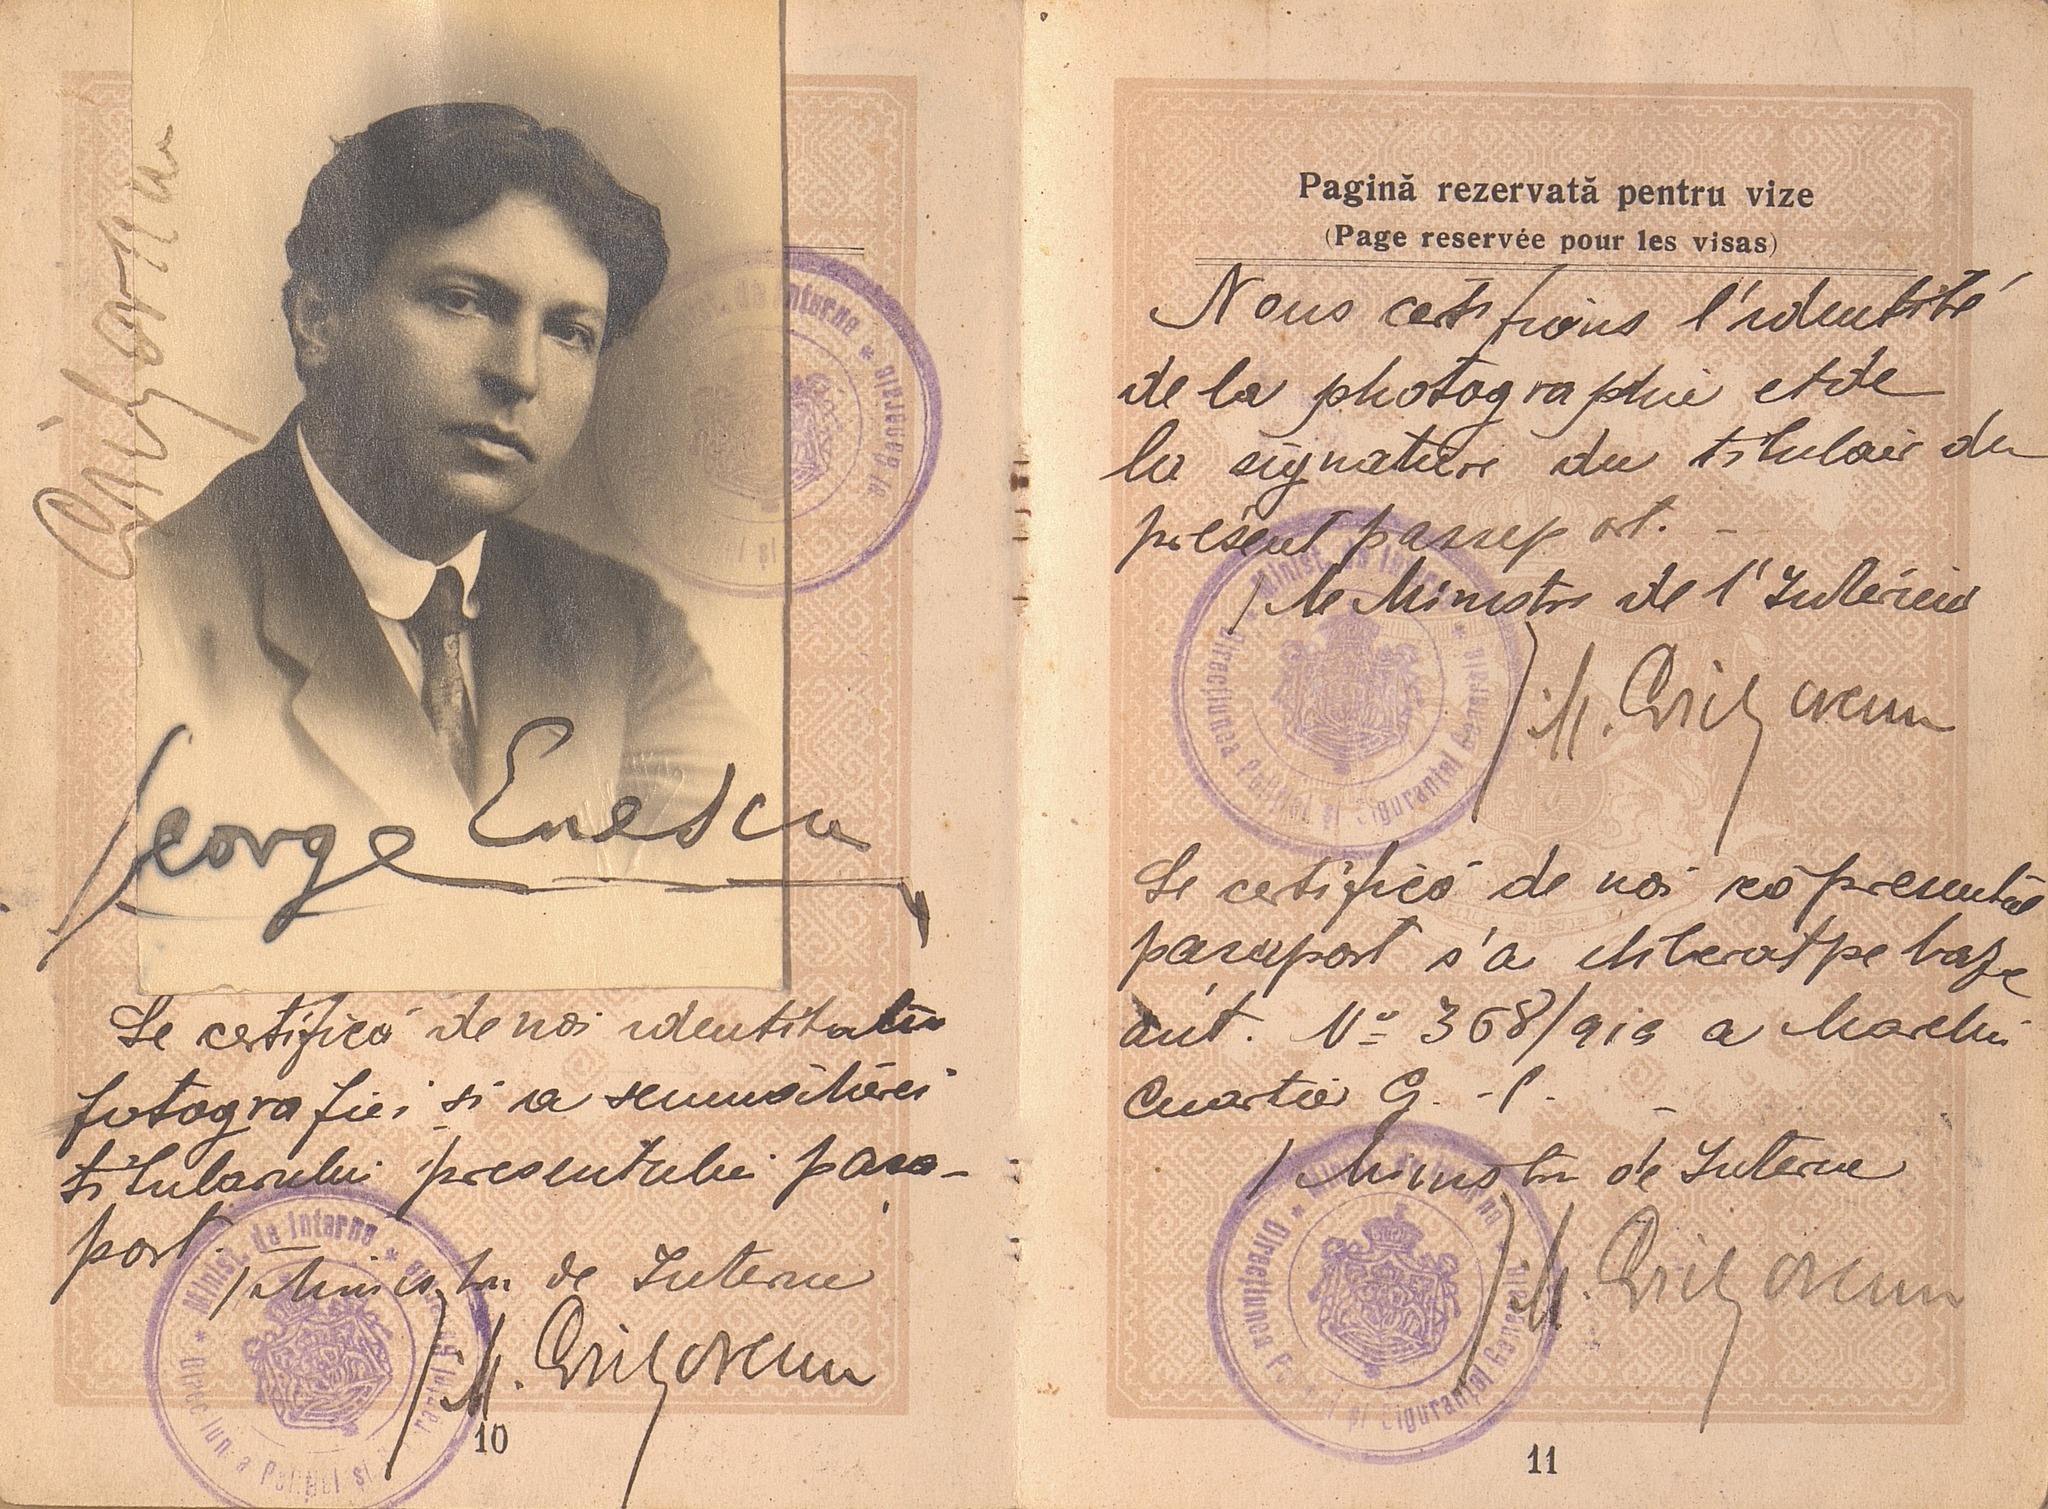 Grigorcu
George Enescu
Se certifică de noi identitatea
fotografiei si a semnăturei
titularului presentului pasa-
port.
/ Ministru de Interne
M. Grigorcu
Minist. de Interne * Direcțiunea Poliției și Siguranței Generale *
10
Pagină rezervată pentru vize
(Page reservée pour les visas)
Nous certifions l'identité
de la photographie et de
la signature du titulaire du
présent passeport. –
/ Le Ministre de l'Intérieur
M. Grigorcu
Minist. de Interne * Direcțiunea Poliției și Siguranței Generale *
Se certifică de noi că presentul
pasaport s'a eliberat pe baza
aut. No 368/919 a Marelui
Cuartier G-l. –
/ Ministru de Interne
M. Grigorcu
Minist. de Interne * Direcțiunea Poliției și Siguranței Generale *
11